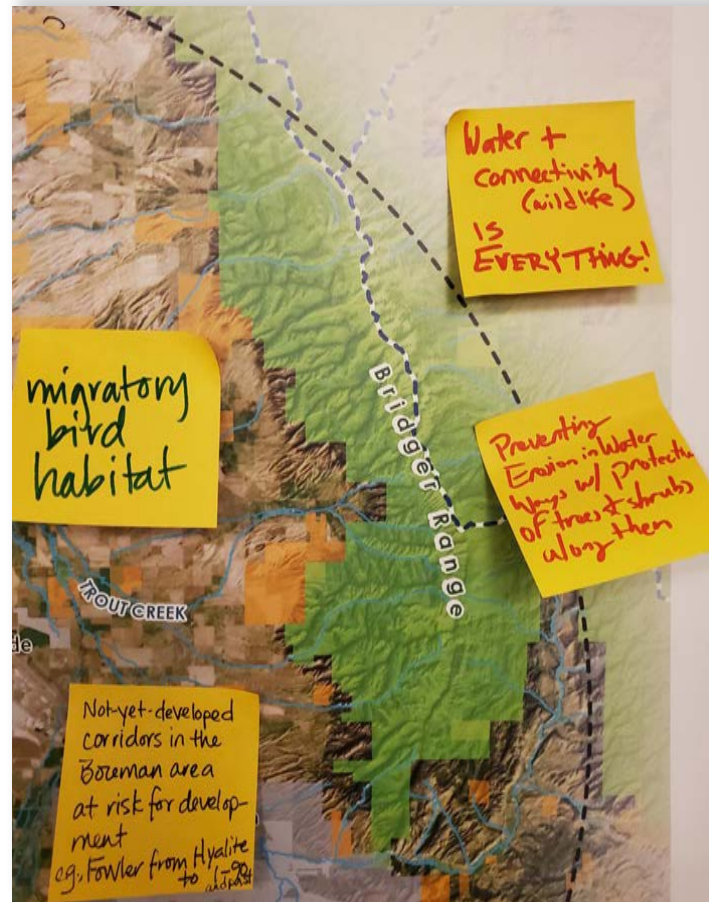 Water +
connectivity
(wildlife)
IS
EVERYTHING!
Bridger Range
migratory
bird
habitat
Preventing
Erosion in Water
Ways w/ protective
of trees & shrubs
along them
TROUT CREEK
de
Not-yet-developed
corridors in the
Bozeman area
at risk for develop-
ment
eg., Fowler from Hyalite
to I-90
and past